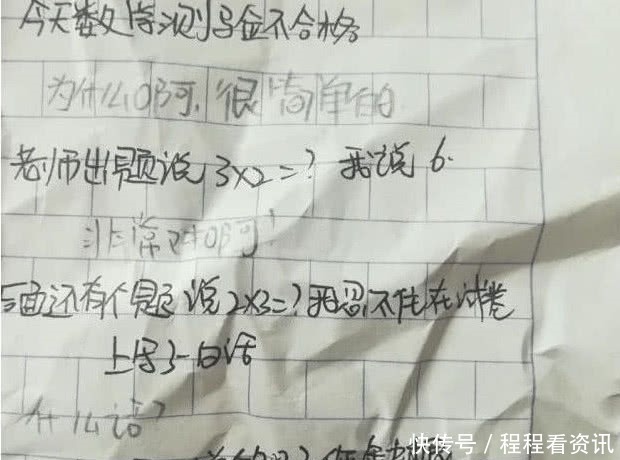 今天数学测验不合格
为什么啊,很简单的
老师出题说3×2=?我说6.
非常对啊!
后面还有个题说2×3=?我忍不住在试卷
上写了一句话
什么话?
快传号/程程看资讯